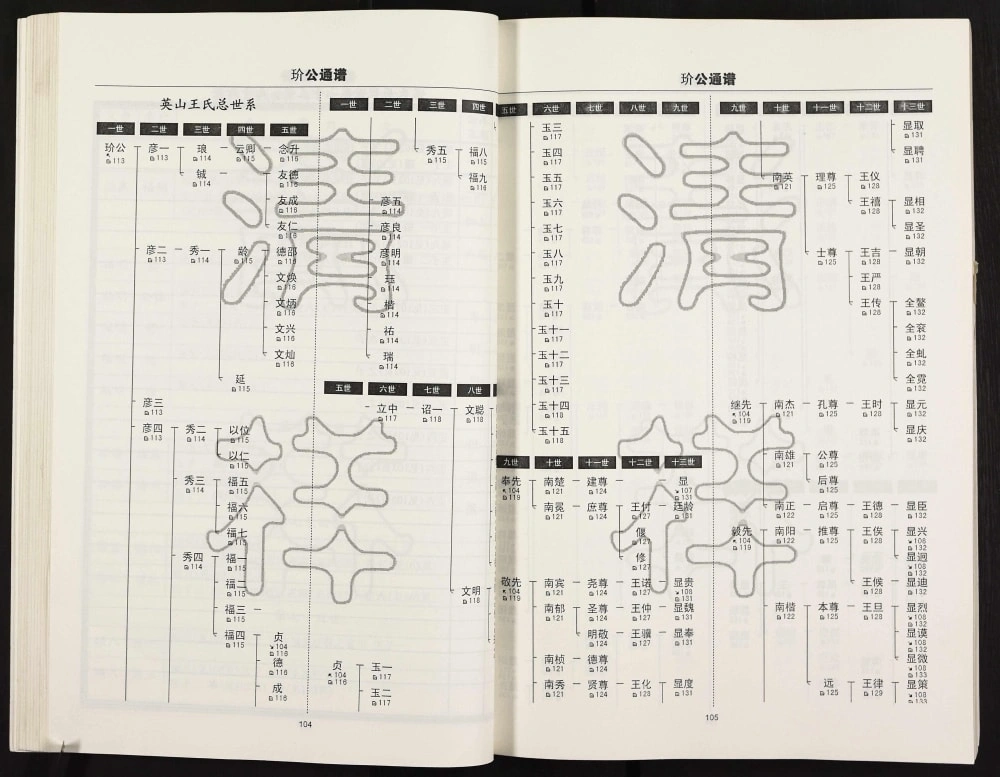 玠公通谱
英山王氏总世系
一世 二世 三世 四世 五世
玠公 彦一 琅 云卿 念升
113 113 114 115 116
钺 友德
114 116
友成
116
友仁
116
彦二 秀一 龄 德邵
113 114 115 116
文焕
116
文炳
116
文兴
116
文灿
116
延
115
彦三
113
彦四 秀二 以位
113 114 115
以仁
115
秀三 福五
114 115
福六
115
福七
115
秀四 福一
114 115
福二
115
福三
115
福四 贞
115 104
116
德
116
成
116
一世 二世 三世 四世
秀五 福八
115 115
福九
116
彦五
114
彦良
114
彦明
114
珏
114
楷
114
祐
114
瑞
114
五世 六世 七世 八世
立中 诏一 文聪
117 118 118
文明
118
贞 玉一
104 117
116
玉二
117
104
玠公通谱
五世 六世 七世 八世 九世
玉三
117
玉四
117
玉五
117
玉六
117
玉七
117
玉八
117
玉九
117
玉十
117
玉十一
117
玉十二
117
玉十三
117
玉十四
118
玉十五
118
九世 十世 十一世 十二世 十三世
奉先 南楚 建尊 显
104 121 124 107
119 131
南冕 庶尊 王付 廷龄
121 124 127 131
偃
127
修
127
敬先 南宾 尧尊 王诺 显贵
104 121 124 127 108
119 131
南郁 圣尊 王仲 显魏
121 124 127 131
明敬 王骥 显奉
124 127 131
南桢 德尊
121 124
南秀 贤尊 王化 显度
121 124 128 131
九世 十世 十一世 十二世 十三世
显取
131
显聘
131
南英 理尊 王仪
121 125 128
王禧 显相
128 132
显圣
132
士尊 王吉 显朝
125 128 132
王严
128
王传 全鳌
128 132
全衮
132
全虬
132
全霓
132
继先 南杰 孔尊 王时 显元
104 121 125 128 132
119
显庆
132
南雄 公尊
121 125
后尊
125
南正 启尊 王德 显臣
122 125 128 132
毅先 南阳 推尊 王俟 显兴
104 122 125 128 108
119 132
显迥
108
132
王候 显迪
128 108
132
南楷 本尊 王旦 显烈
122 125 128 108
132
显谟
108
132
显微
108
133
远 王律 显策
125 129 108
133
105